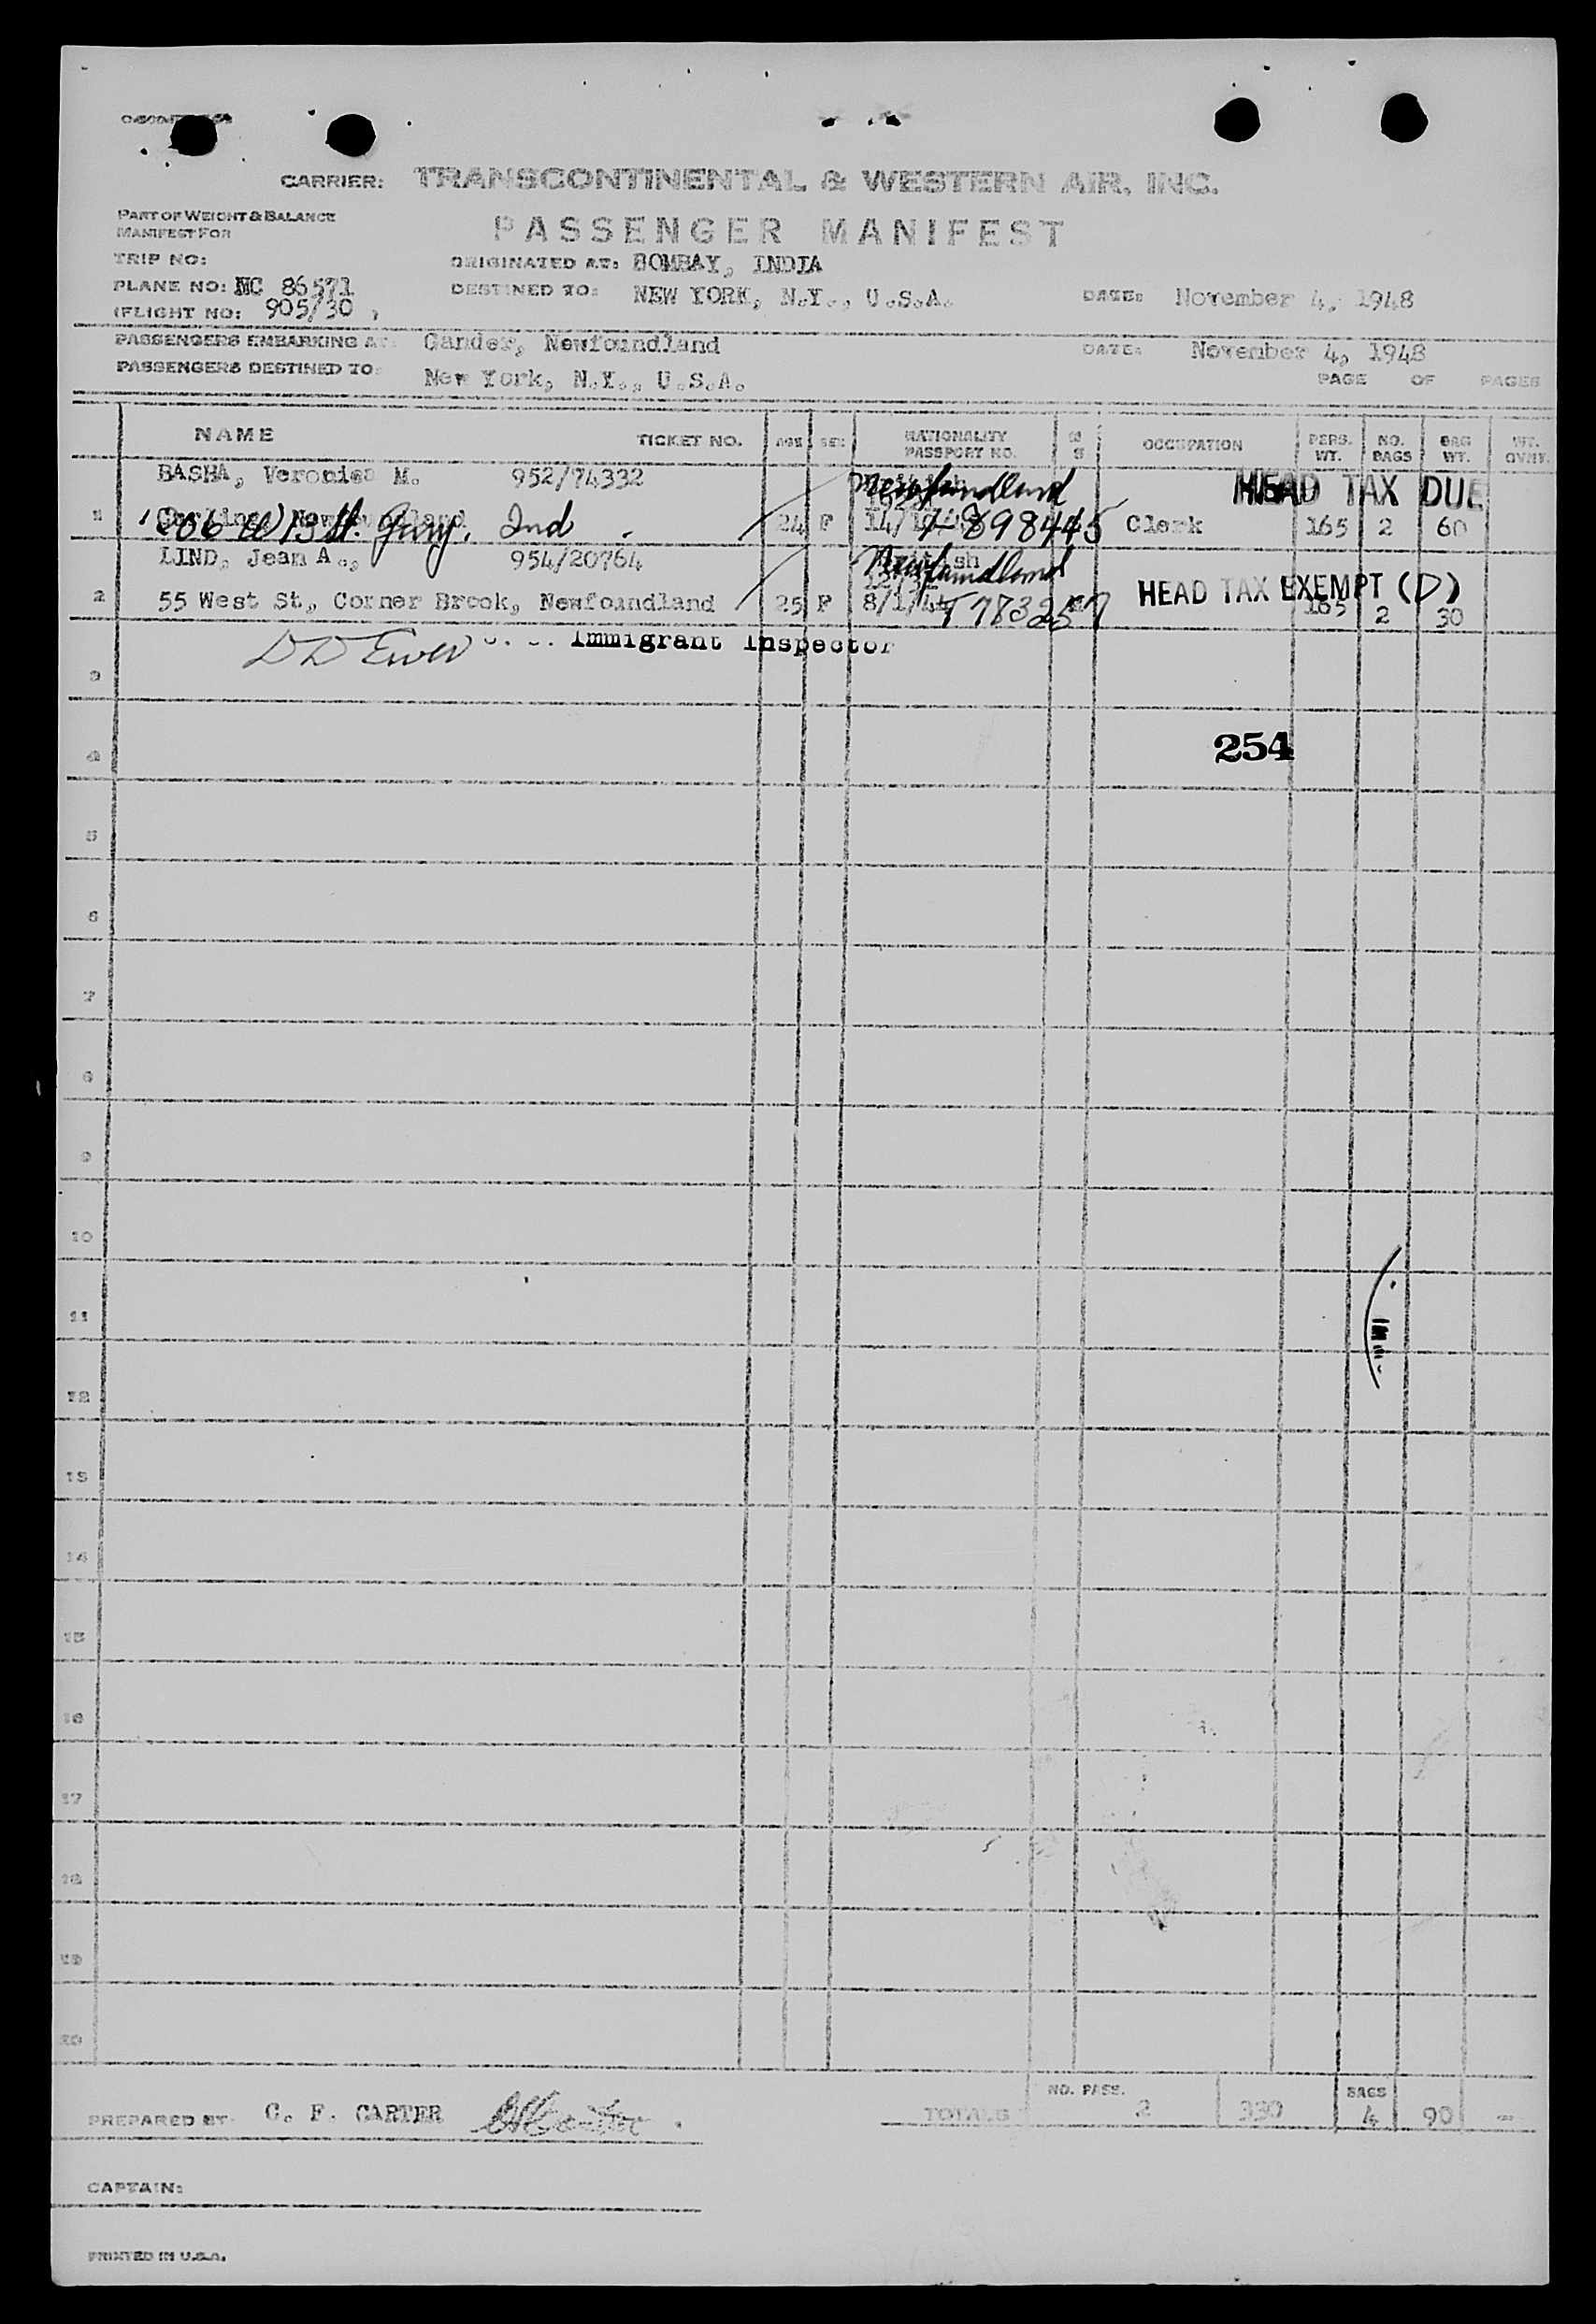 CARRIER: TRANSCONTINENTAL & WESTERN AIR, INC.
PART OF WEIGHT & BALANCE
MANIFEST FOR
PASSENGER MANIFEST
TRIP NO:
ORIGINATED AT: BOMBAY, INDIA
PLANE NO: NC 86571
DESTINED TO: NEW YORK, N.Y., U.S.A.
DATE: November 4, 1948
(FLIGHT NO: 905/30 )
PASSENGERS EMBARKING AT: Gander, Newfoundland
DATE: November 4, 1948
PASSENGERS DESTINED TO: New York, N.Y., U.S.A.
PAGE OF PAGES
NAME TICKET NO. AGE SEX NATIONALITY PASSPORT NO. M S OCCUPATION PERS. WT. NO. BAGS BAG WT. WT. OVHT.
BASHA, Veronica M. 952/74332 Newfoundland HEAD TAX DUE
1 W 13 St. Gary, Ind 24 F 898445 Clerk 165 2 60
LIND, Jean A., 954/20764 Newfoundland HEAD TAX EXEMPT (D)
2 55 West St., Corner Brook, Newfoundland 25 F 8/1/ 165 2 30
Immigrant Inspector
3
254
4
5
6
7
8
9
10
11
12
13
14
15
16
17
18
19
20
NO. PASS. BAGS
PREPARED BY C. F. CARTER
TOTALS 2 330 4 90 -
CAPTAIN:
PRINTED IN U.S.A.